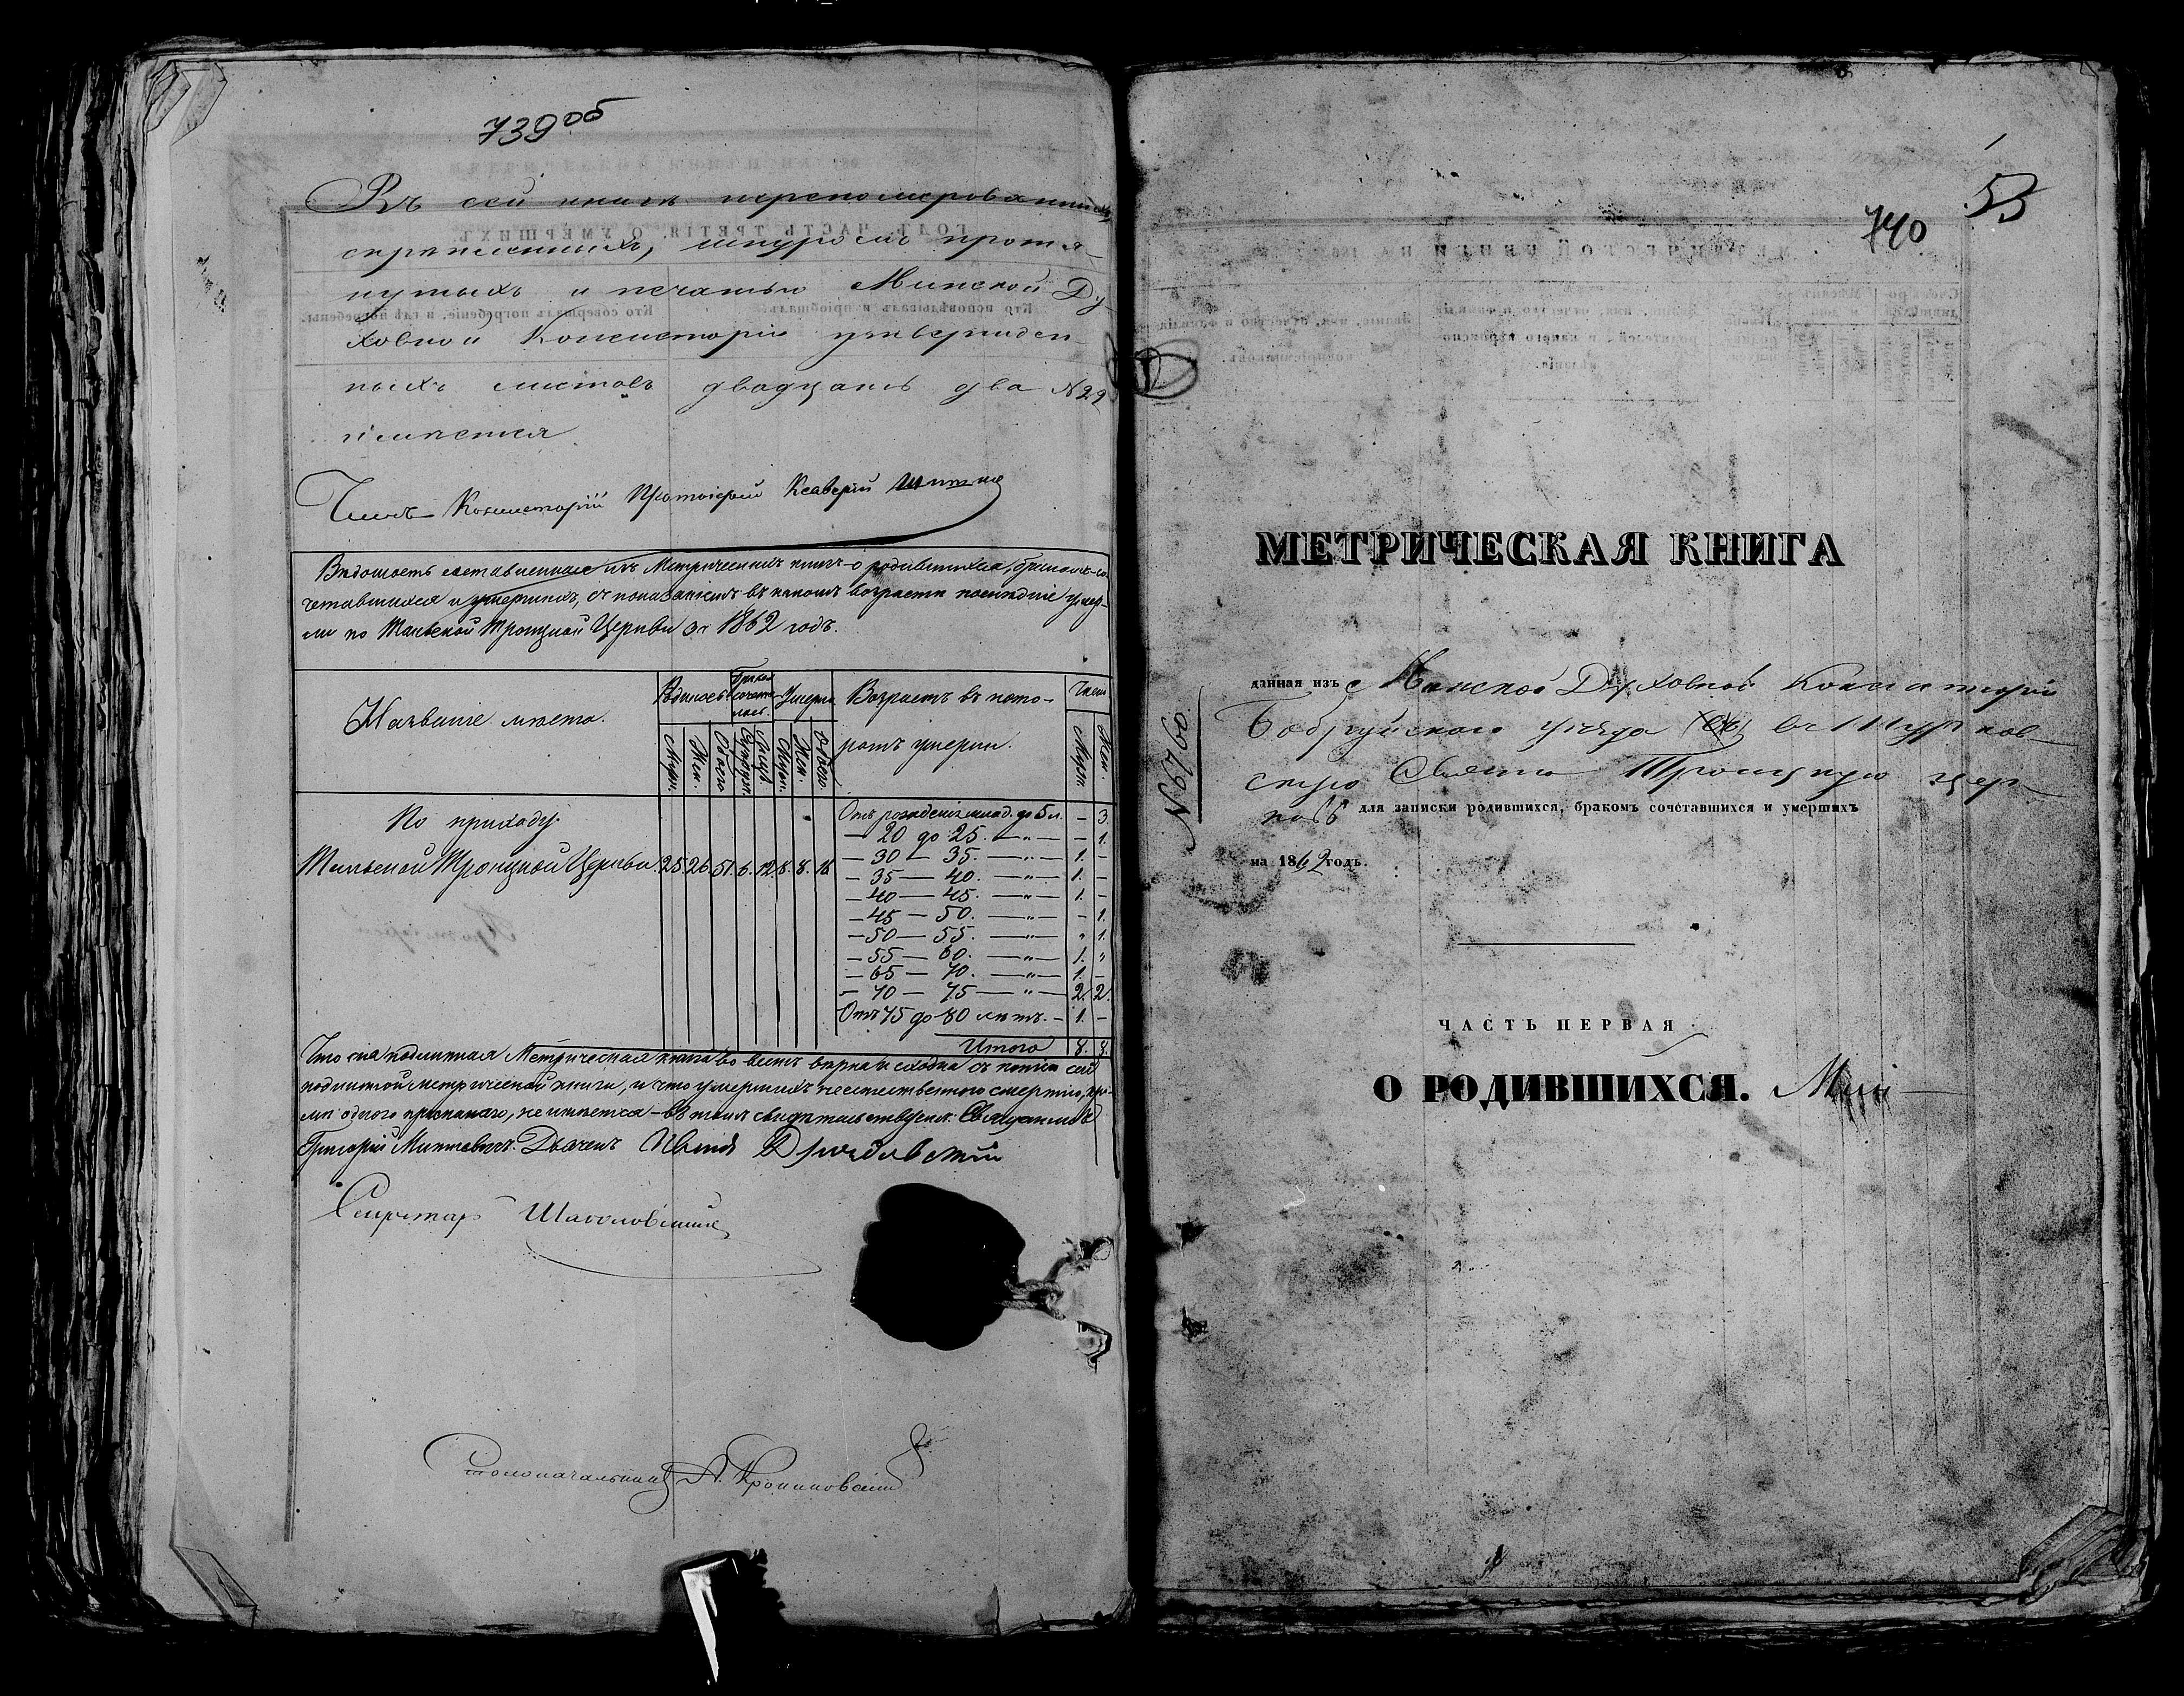 739об
Въ сей книгѣ перенумерованныхъ,
скрѣпленныхъ, шнуромъ протя-
нутыхъ и печатью Минской Ду-
ховной Консисторіи утвержден-
ныхъ листовъ двадцать два №22
имѣется
Членъ Консисторіи Протоіерей Ксаверій
Вѣдомость составленная изъ Метрическихъ книгъ о родившихся, бракомъ со-
четавшихся и умершихъ, съ показаніемъ въ какомъ возрастѣ последніе умер-
ли по Тальской Троицкой Церкви за 1862 годъ.
Названіе мѣста.
Родилось
Бракомъ
Умерло
Возрастъ въ кото-
ромъ умерли.
Число
Муж.
Жен.
Обоего
Муж.
Жен.
Обоего.
Муж.
Жен.
По приходу
Тальской Троицкой Церкви. 25. 26. 51. 6. 12. 8. 8. 16
Отъ рожденія млад. до 5 л. – 3.
— 20 до 25. — „ — – 1.
— 30 — 35. — „ — 1. –
— 35 — 40. — „ — 1. –
— 40 — 45. — „ — 1. –
— 45 — 50. — „ — – 1.
— 50 — 55. — „ — „ 1.
— 55 — 60. — „ — 1. „
— 65 — 70. — „ — 1. –
— 70 — 75 — „ — 2. 2.
Отъ 75 до 80 лѣтъ. – 1. –
Итого 8. 8.
Что сія подлинная Метрическая книга во всемъ вѣрна и сходна съ копіею сей
подлинной метрической книги, и что умершихъ неестественного смертію, кро-
мѣ одного, не имѣется – въ томъ свидѣтельствуемъ. Священникъ
Григорій Дьячекъ Иванъ
Секретарь
Столоначальникъ А.
1
53
740
№ 29760
МЕТРИЧЕСКАЯ КНИГА
данная изъ Минской Духовной Консисторіи
Бобруйскаго уѣзда въ
скую Свято Троицкую цер-
ковь для записки родившихся, бракомъ сочетавшихся и умершихъ
на 1862 годъ.
ЧАСТЬ ПЕРВАЯ
О РОДИВШИХСЯ.